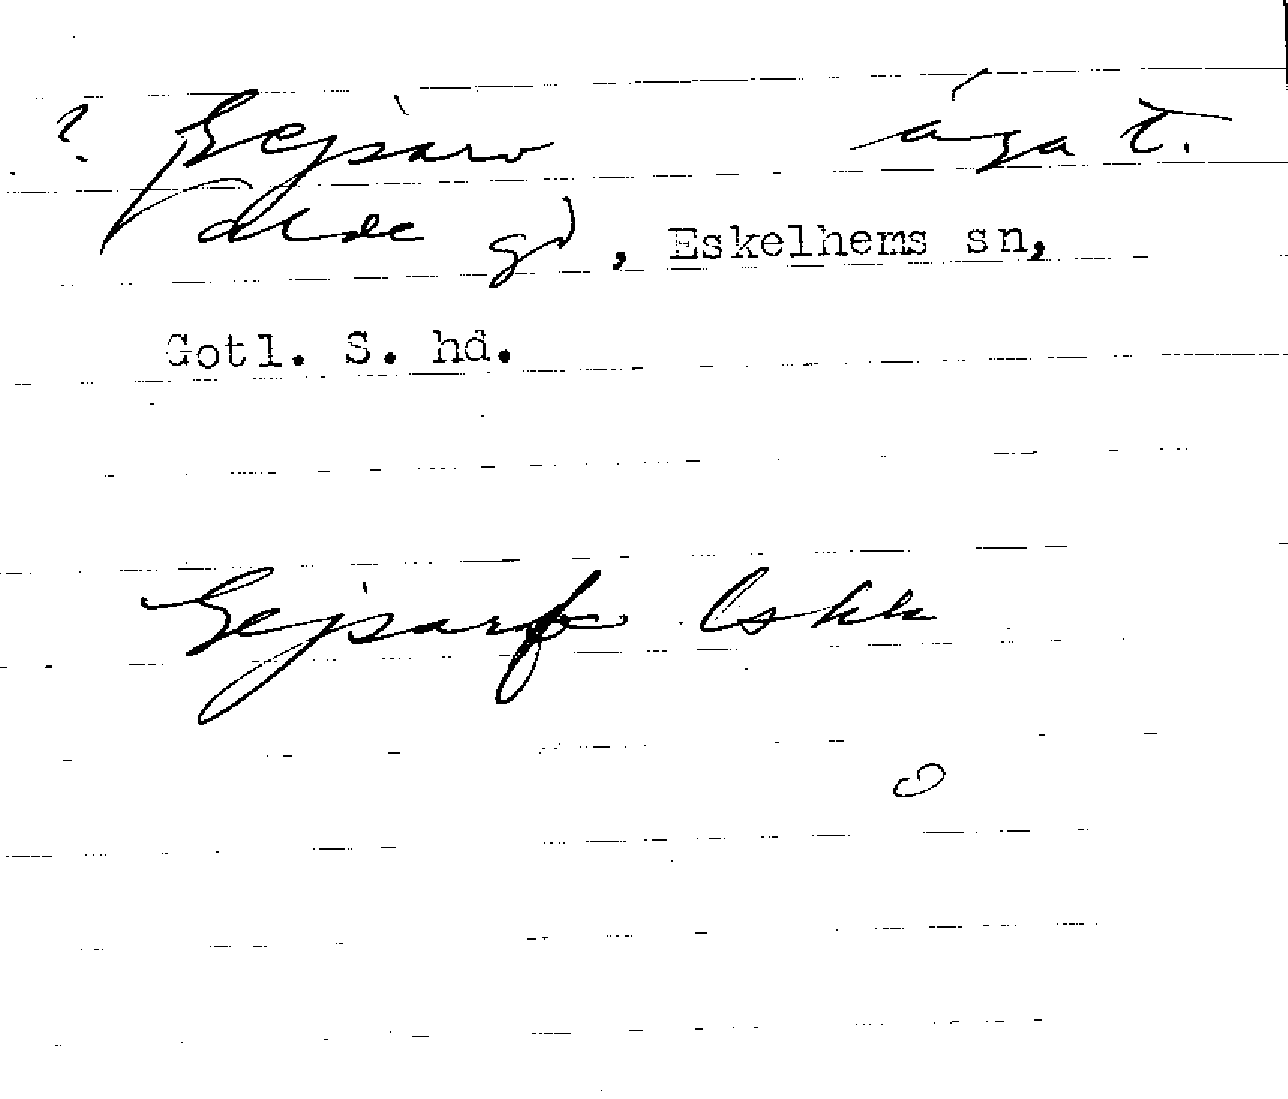 ? Gejsarv äga t.
Alde gd, Eskelhems sn,
Gotl. S. hd.
Gejsarfve Lskk